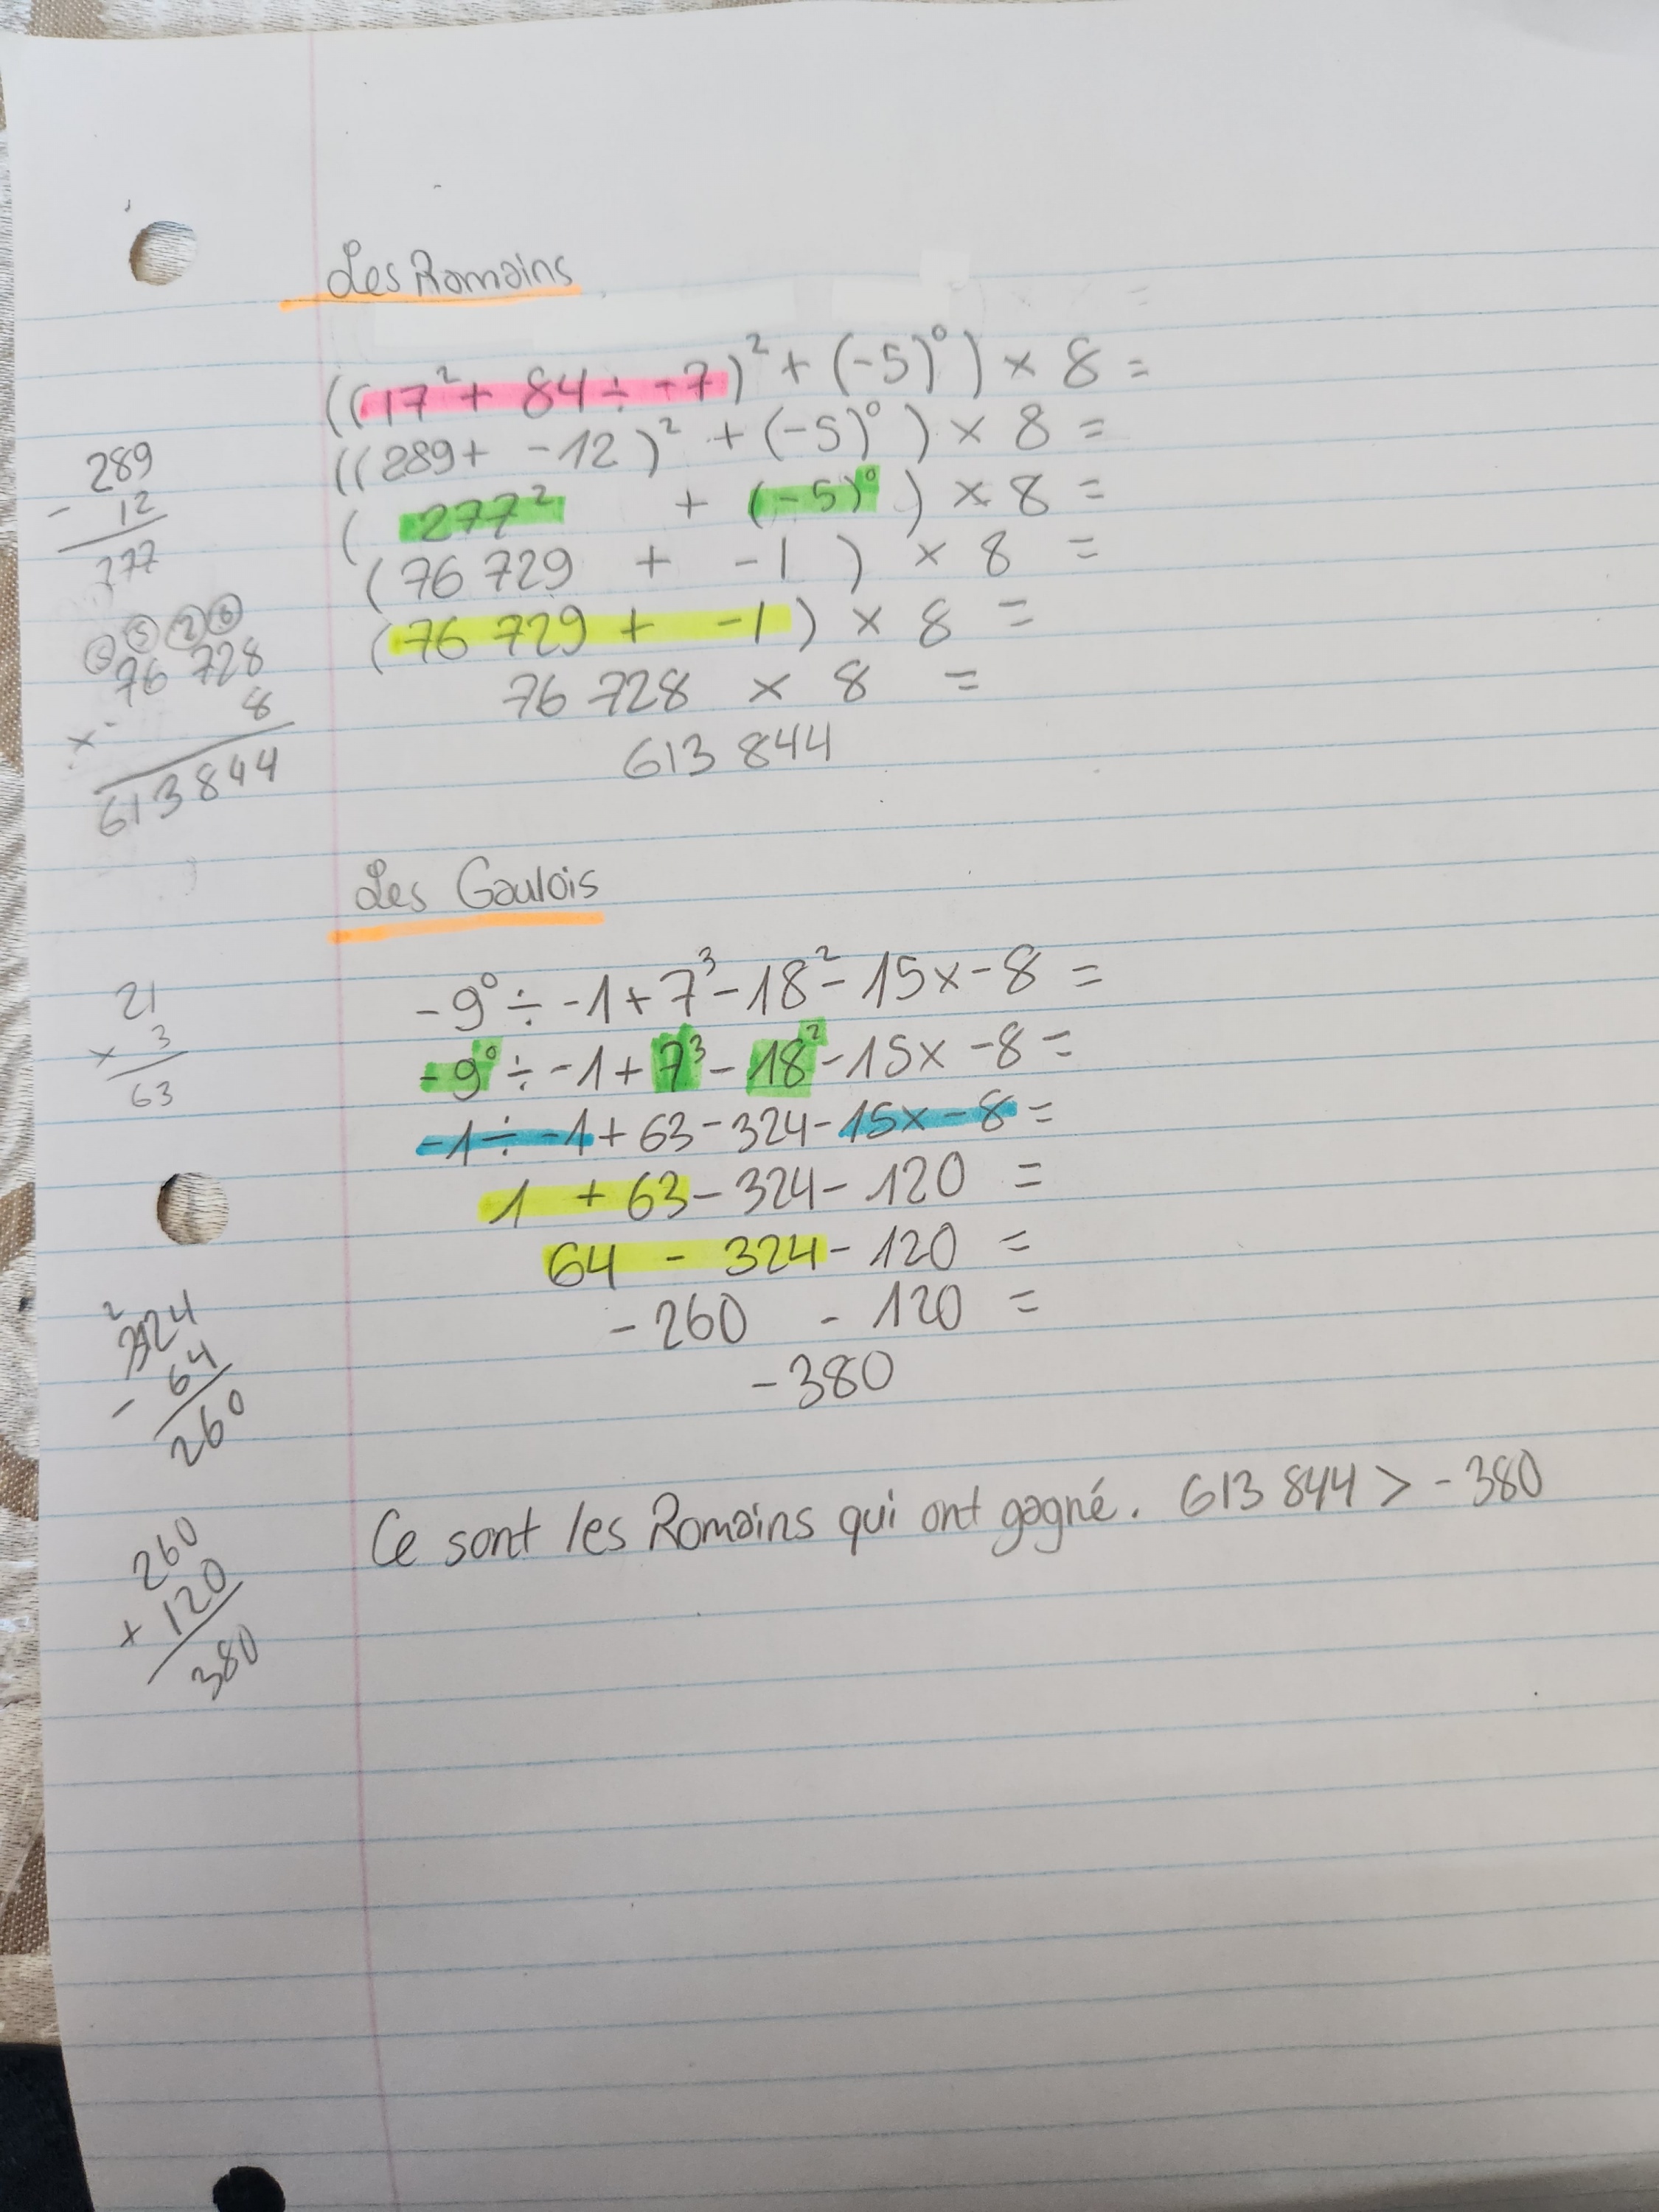 Les Romains
((17² + 84 ÷ -7)² + (-5)⁰) × 8 =
((289 + -12)² + (-5)⁰) × 8 =
(277² + (-5)⁰) × 8 =
(76 729 + -1) × 8 =
(76 729 + -1) × 8 =
76 728 × 8 =
613 844
289
- 12
277
76 728
× 8
613 844
Les Gaulois
-9⁰ ÷ -1 + 7³ - 18² - 15 x - 8 =
-9⁰ ÷ -1 + 7³ - 18² - 15 x - 8 =
-1 ÷ -1 + 63 - 324 - 15 x - 8 =
1 + 63 - 324 - 120 =
64 - 324 - 120 =
-260 - 120 =
-380
21
× 3
63
324
- 64
260
260
+ 120
380
Ce sont les Romains qui ont gagné. 613 844 > -380